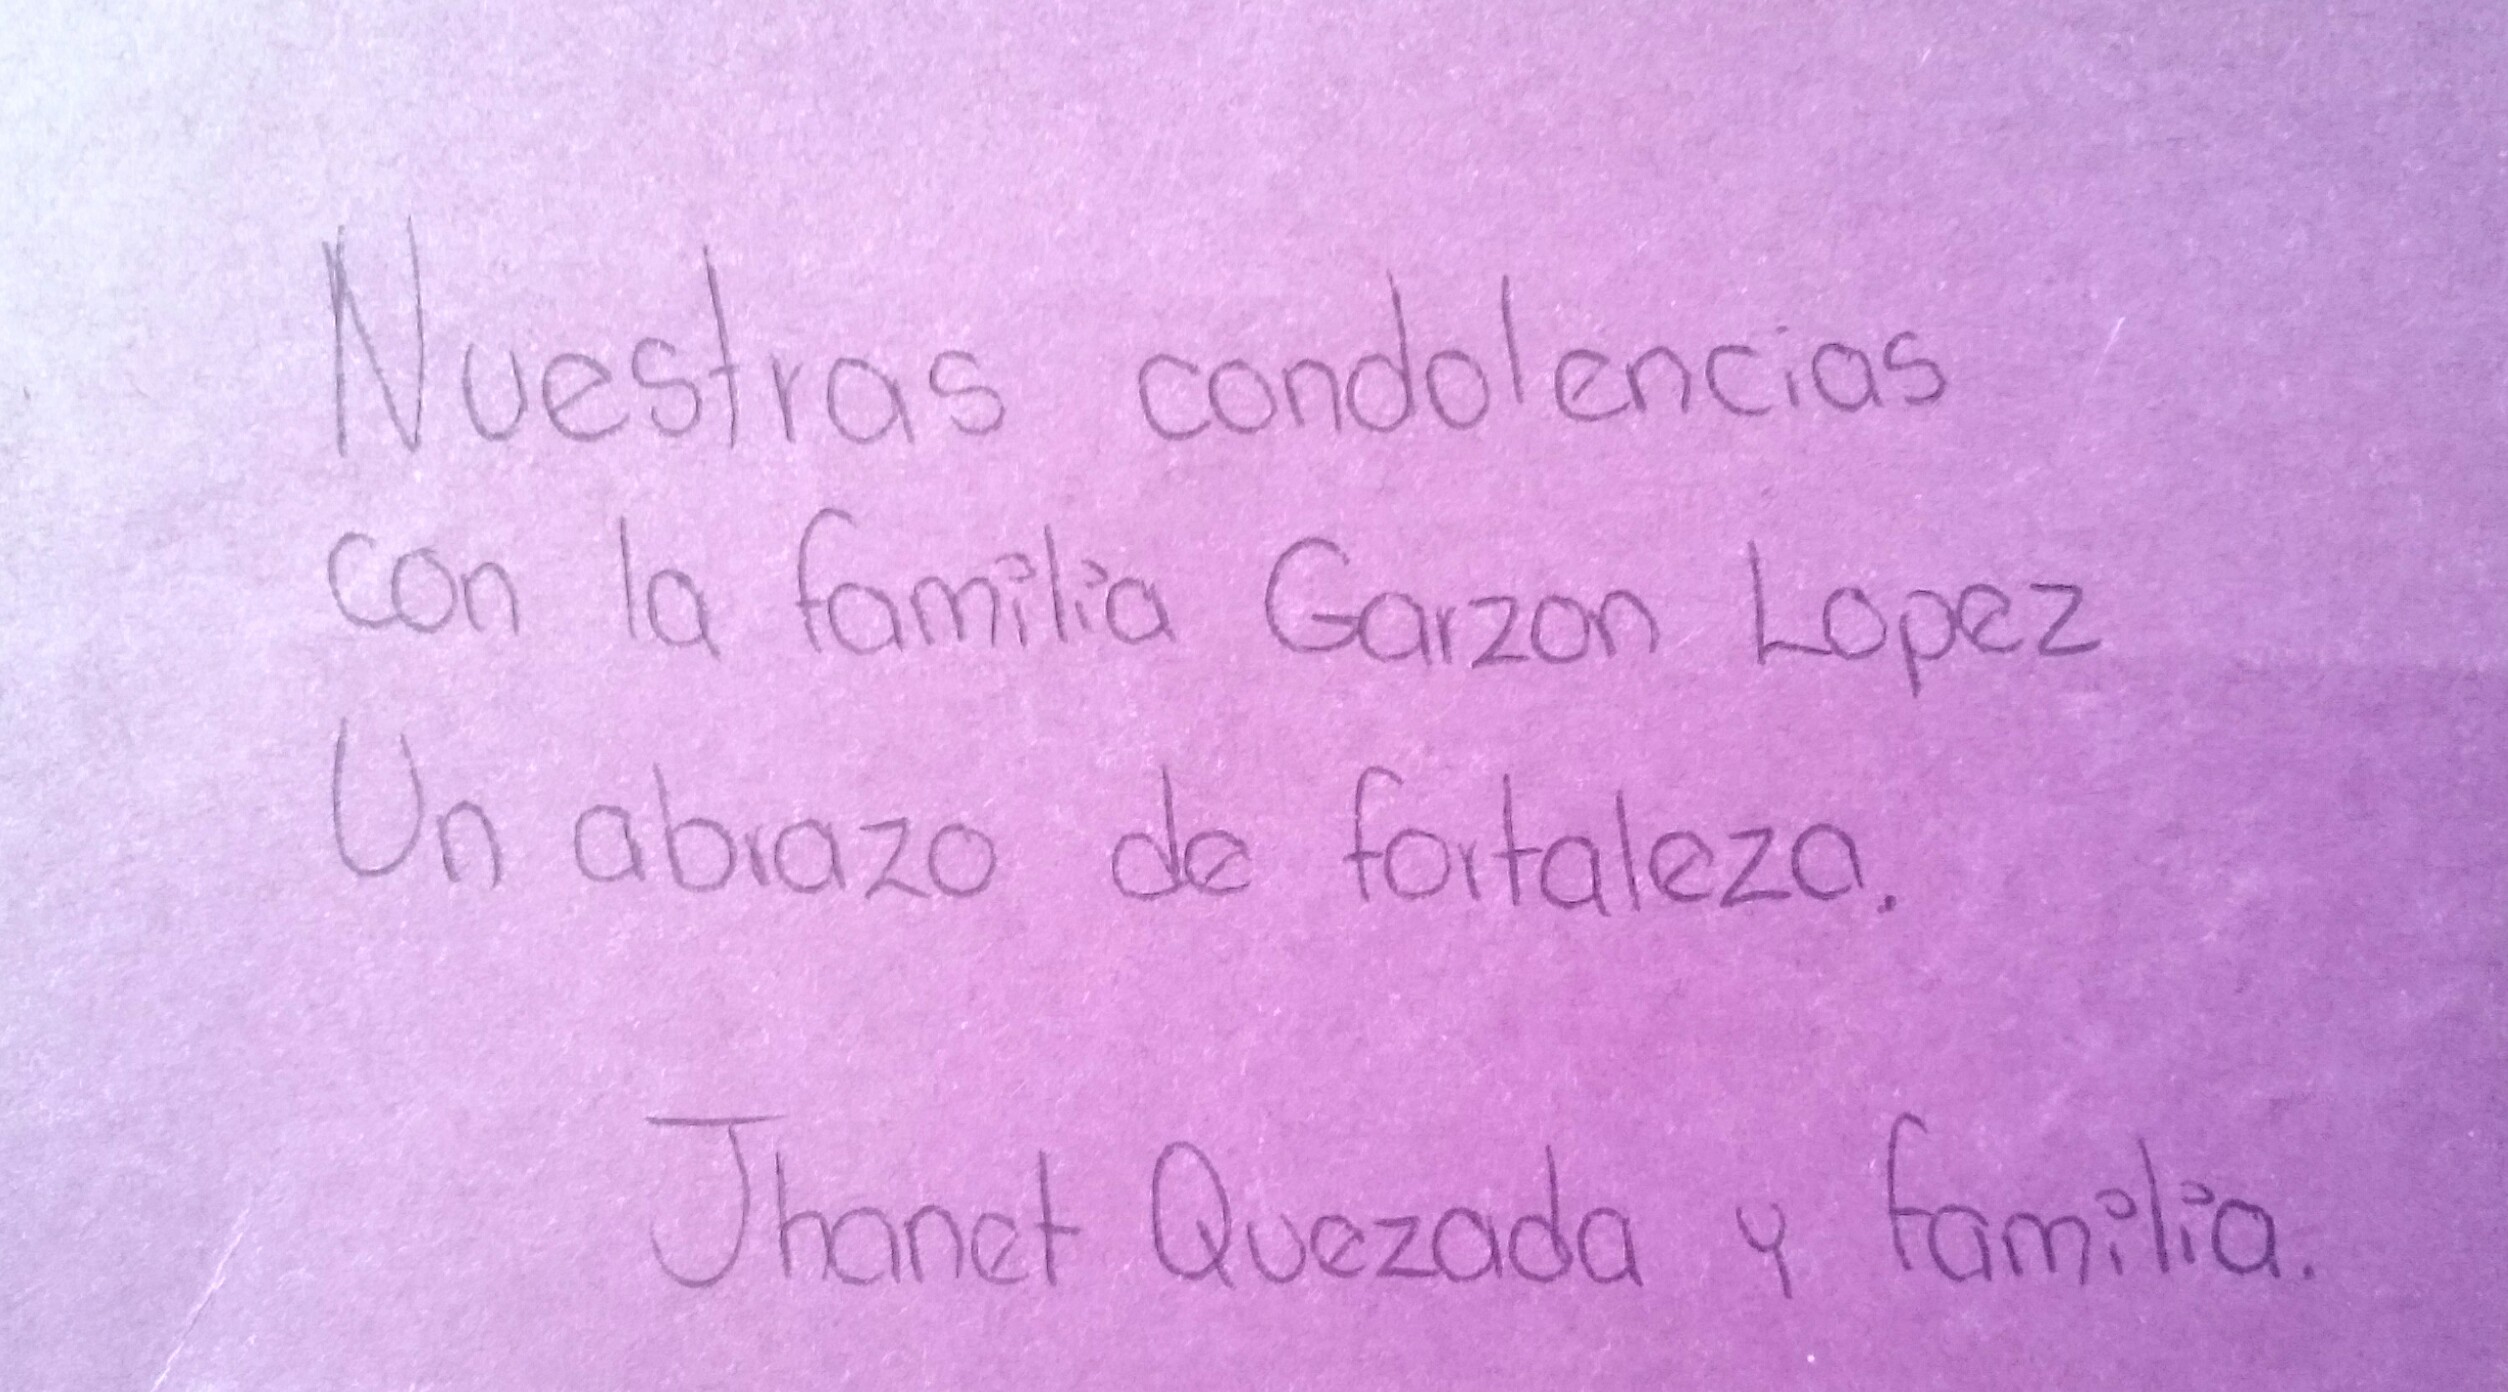 Nuestras condolencias
con la familia Garzon Lopez
Un abrazo de fortaleza.
Jhanet Quezada y familia.